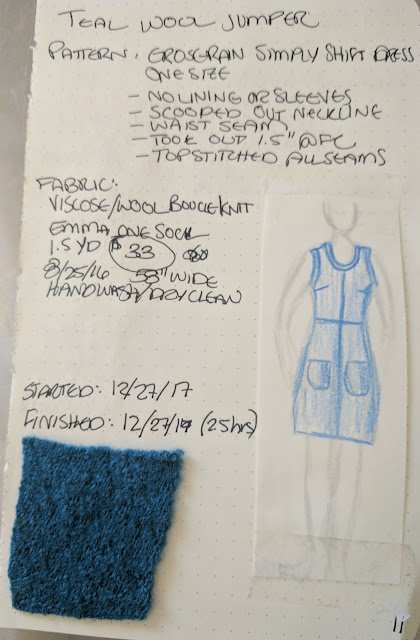 TEAL WOOL JUMPER
PATTERN: GROSGRAIN SIMPLY SHIFT DRESS
ONE SIZE
- NO LINING OR SLEEVES
- SCOOPED OUT NECKLINE
- WAIST SEAM
- TOOK OUT 1.5" @ FC
- TOPSTITCHED ALL SEAMS
FABRIC:
VISCOSE/WOOL BOUCLE KNIT
EMMA ONE SOCK
1.5 YD $33
8/25/16 58" WIDE
HANDWASH/DRY CLEAN
STARTED: 12/27/17
FINISHED: 12/27/17 (2.5 hrs)
11